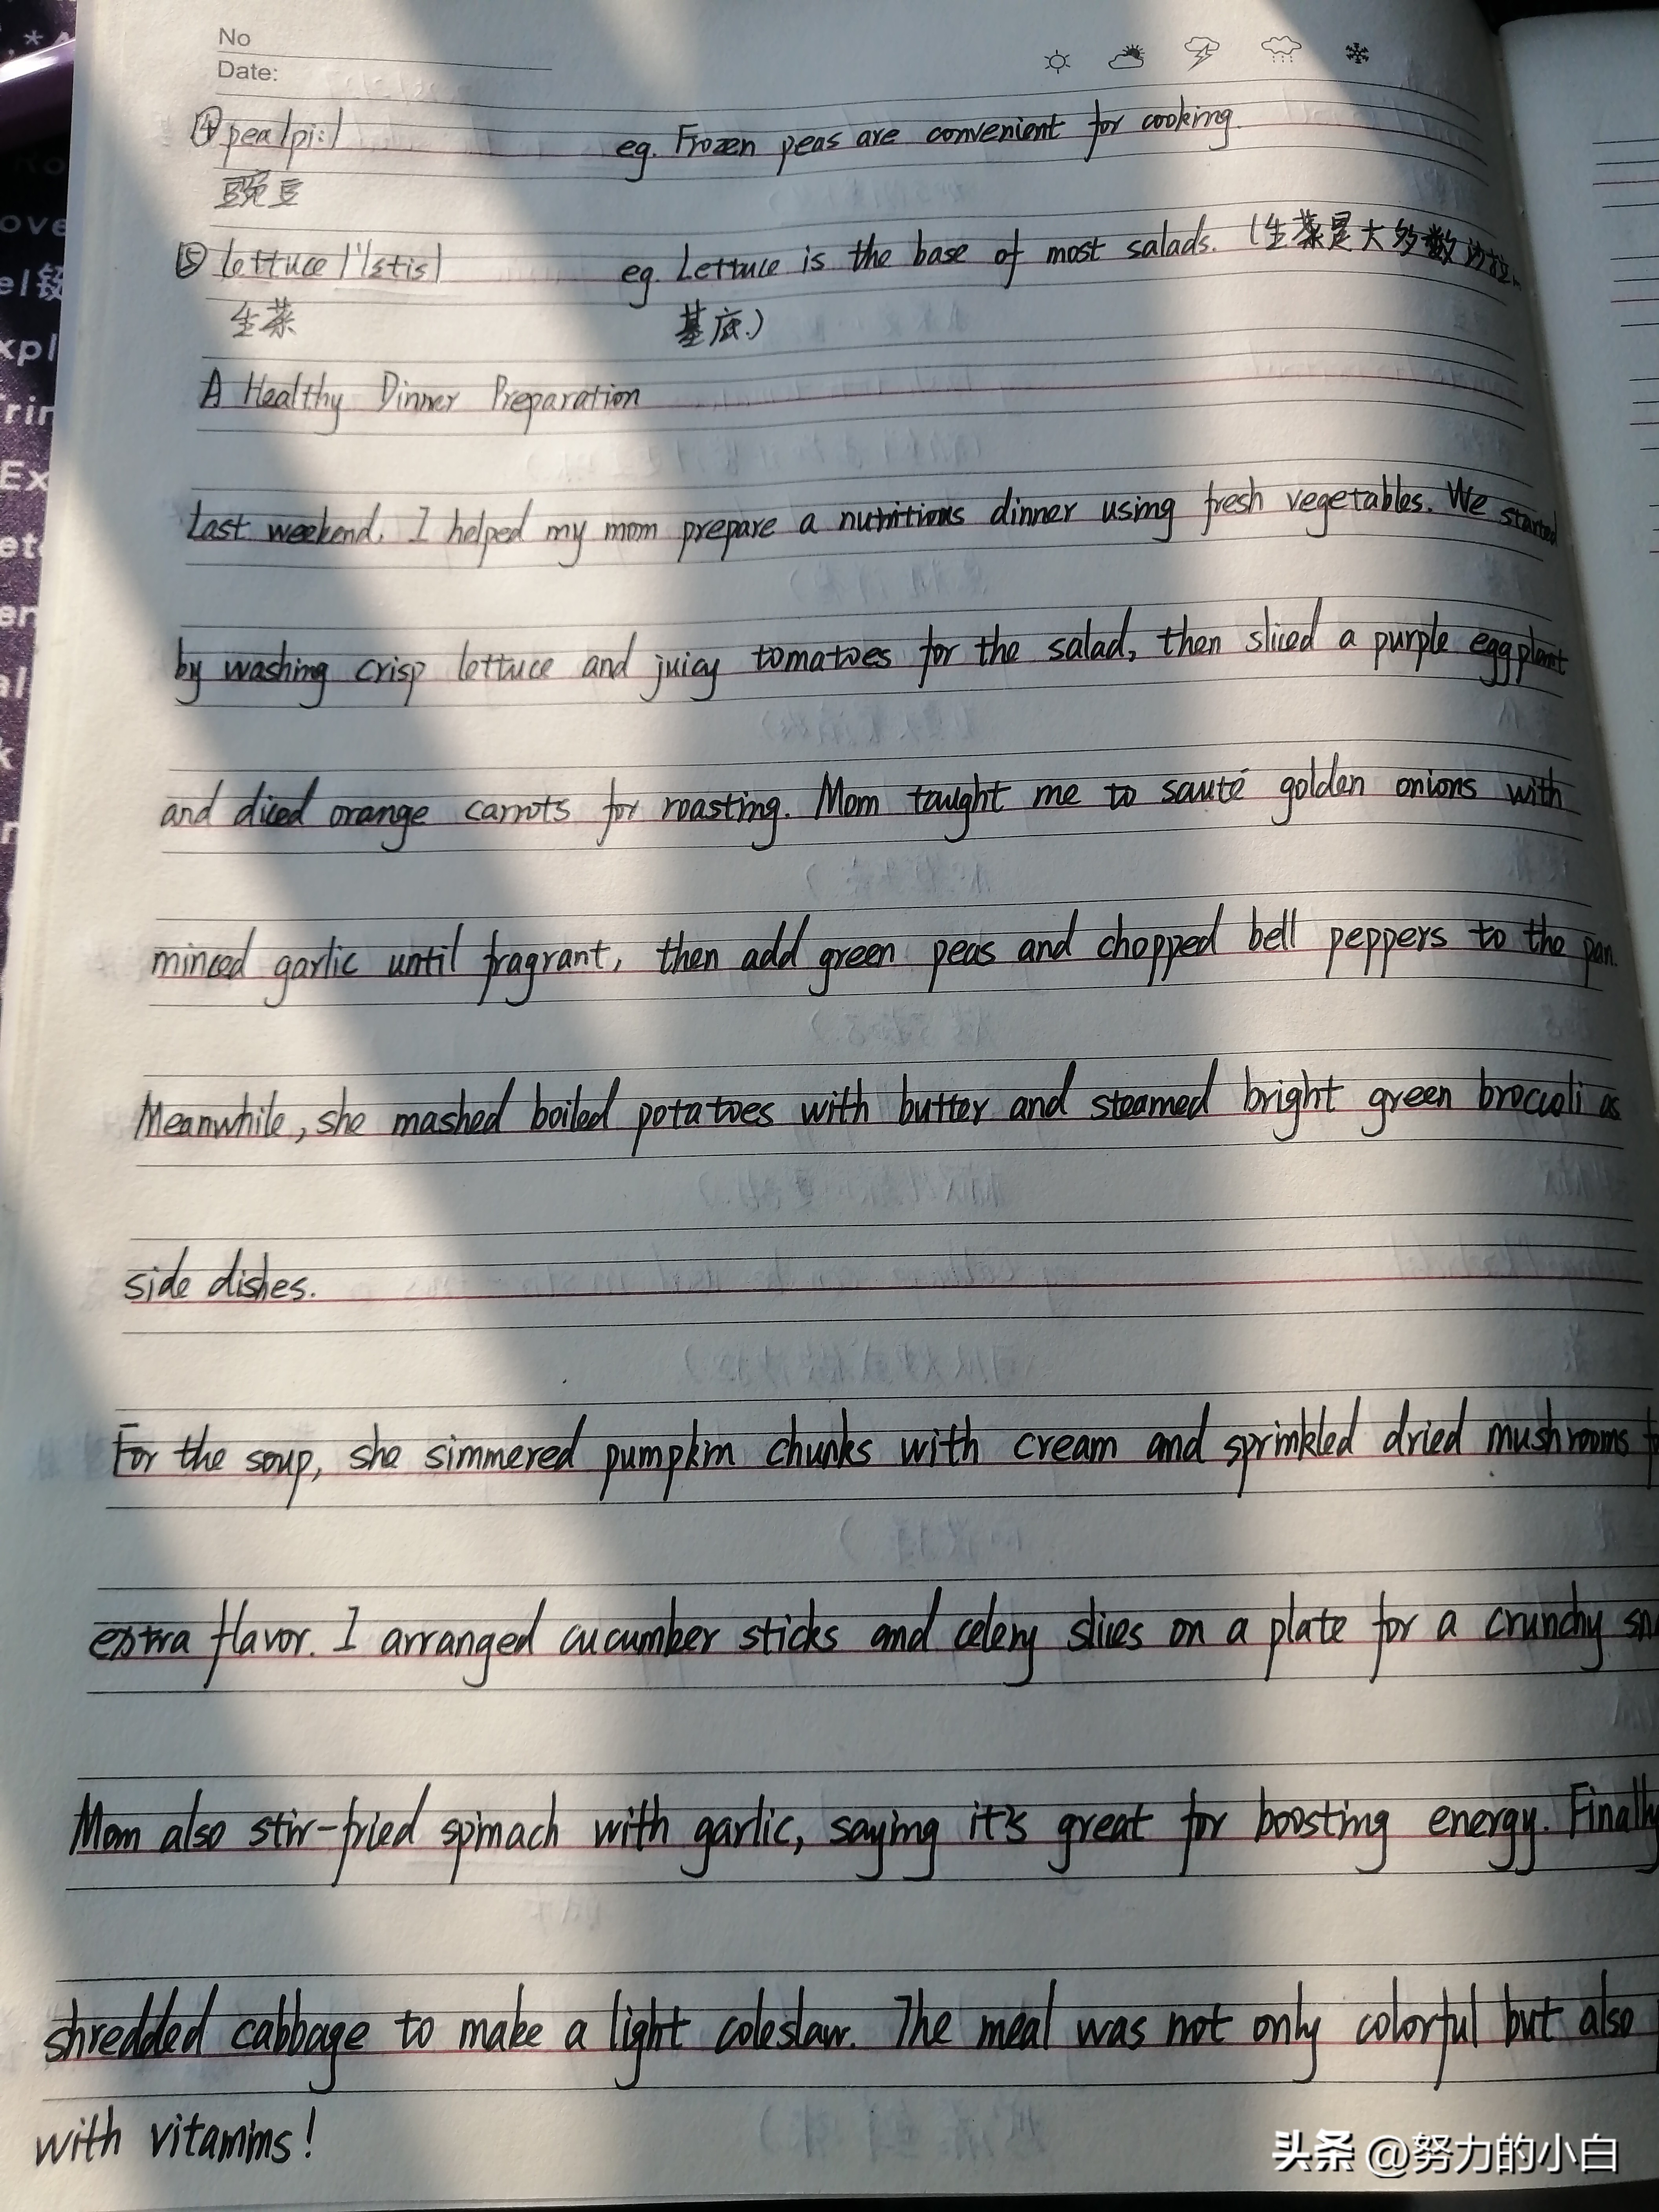 No
Date:
④ pea /pi:/ eg. Frozen peas are convenient for cooking.
豌豆
⑤ lettuce /'letis/ eg. Lettuce is the base of most salads. (生菜是大多数沙拉
生菜 基底.)
A Healthy Dinner Preparation
Last weekend, I helped my mom prepare a nutritious dinner using fresh vegetables. We started
by washing crisp lettuce and juicy tomatoes for the salad, then sliced a purple eggplant
and diced orange carrots for roasting. Mom taught me to sauté golden onions with
minced garlic until fragrant, then add green peas and chopped bell peppers to the pan.
Meanwhile, she mashed boiled potatoes with butter and steamed bright green broccoli as
side dishes.
For the soup, she simmered pumpkin chunks with cream and sprinkled dried mushrooms
extra flavor. I arranged cucumber sticks and celery slices on a plate for a crunchy
Mom also stir-fried spinach with garlic, saying it's great for boosting energy. Finally
shredded cabbage to make a light coleslaw. The meal was not only colorful but also
with vitamins!
头条 @努力的小白